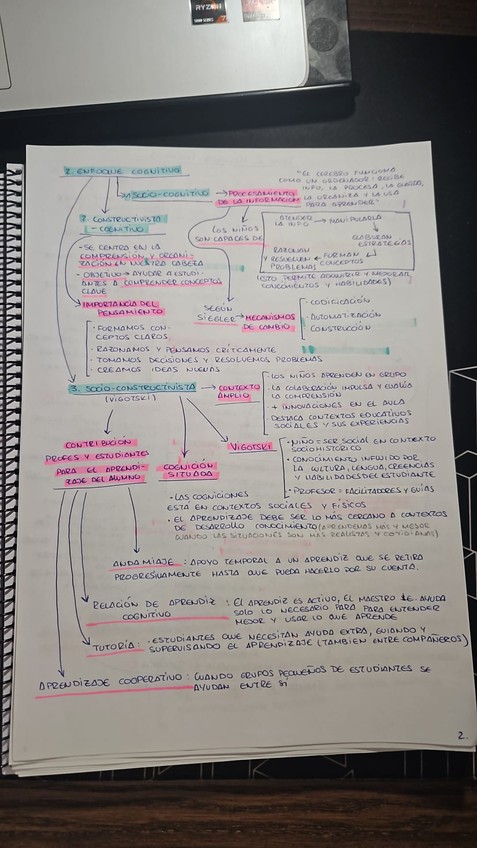 RYZEN
7
1. ENFOQUE COGNITIVO
SOCIO-COGNITIVO → PROCESAMIENTO
DE LA INFORMACIÓN
"EL CEREBRO FUNCIONA
COMO UN ORDENADOR: RECIBE
INFO, LA PROCESA, LA GUARDA,
LA ORGANIZA Y LA USA
PARA APRENDER"
LOS NIÑOS
SON CAPACES DE
ATENDER
LA INFO → MANIPULARLA
ELABORAN
ESTRATEGIAS
RAZONAN
Y RESUELVEN ← FORMAN
PROBLEMAS CONCEPTOS
(ESTO PERMITE ADQUIRIR Y MEJORAR
CONOCIMIENTOS Y HABILIDADES)
2. CONSTRUCTIVISTA
- COGNITIVO
-SE CENTRA EN LA
COMPRENSIÓN Y ORGANI-
ZACIÓN EN NUESTRA CABEZA
- OBJETIVO → AYUDAR A ESTUDI-
ANTES A COMPRENDER CONCEPTOS
CLAVE
IMPORTANCIA DEL
PENSAMIENTO
- FORMAMOS CON-
CEPTOS CLAROS
- RAZONAMOS Y PENSAMOS CRÍTICAMENTE
- TOMAMOS DECISIONES Y RESOLVEMOS PROBLEMAS
- CREAMOS IDEAS NUEVAS
SEGÚN
SIEGLER → MECANISMOS
DE CAMBIO
- CODIFICACIÓN
- AUTOMATIZACIÓN
- CONSTRUCCIÓN
3. SOCIO-CONSTRUCTIVISTA → CONTEXTO
(VIGOTSKI) AMPLIO
- LOS NIÑOS APRENDEN EN GRUPO
- LA COLABORACIÓN IMPULSA Y EVALÚA
LA COMPRENSIÓN
- + INNOVACIONES EN EL AULA
DESTACA CONTEXTOS EDUCATIVOS
SOCIALES Y SUS EXPERIENCIAS
CONTRIBUCIÓN
PROFES Y ESTUDIANTES
PARA EL APRENDI-
ZAJE DEL ALUMNO
COGNICIÓN
SITUADA
VIGOTSKI
- NIÑO = SER SOCIAL EN CONTEXTO
SOCIOHISTÓRICO
- CONOCIMIENTO INFLUIDO POR
LA CULTURA, LENGUA, CREENCIAS
Y HABILIDADES DEL ESTUDIANTE
- PROFESOR = FACILITADORES Y GUÍAS
- LAS COGNICIONES
ESTÁ EN CONTEXTOS SOCIALES Y FÍSICOS
- EL APRENDIZAJE DEBE SER LO MÁS CERCANO A CONTEXTOS
DE DESARROLLO CONOCIMIENTO (APRENDEMOS MÁS Y MEJOR
CUANDO LAS SITUACIONES SON MÁS REALISTAS Y COTIDIANAS)
ANDAMIAJE: APOYO TEMPORAL A UN APRENDIZ QUE SE RETIRA
PROGRESIVAMENTE HASTA QUE PUEDA HACERLO POR SU CUENTA.
RELACIÓN DE APRENDIZ: EL APRENDIZ ES ACTIVO, EL MAESTRO LE AYUDA
COGNITIVO SOLO LO NECESARIO PARA PARA ENTENDER
MEJOR Y USAR LO QUE APRENDE
TUTORÍA: - ESTUDIANTES QUE NECESITAN AYUDA EXTRA, GUIANDO Y
SUPERVISANDO EL APRENDIZAJE (TAMBIEN ENTRE COMPAÑEROS)
APRENDIZAJE COOPERATIVO: CUANDO GRUPOS PEQUEÑOS DE ESTUDIANTES SE
AYUDAN ENTRE SÍ
2.